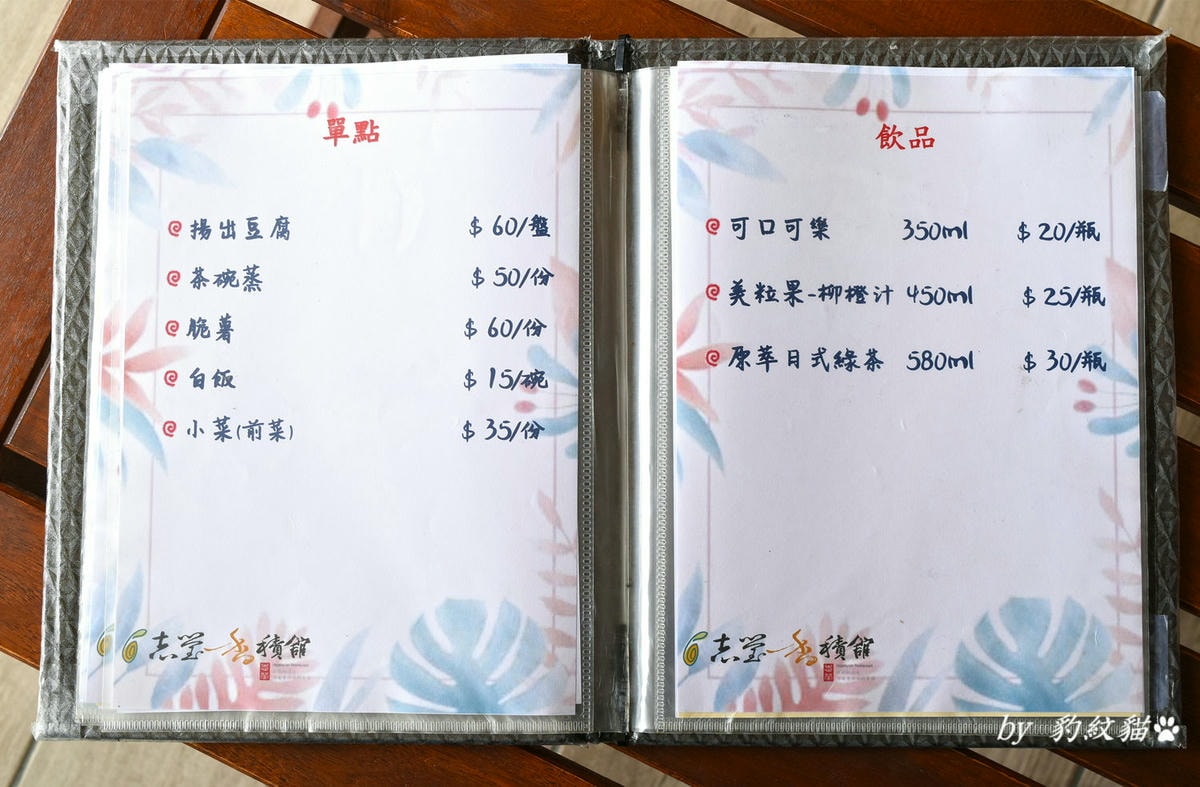 單點
揚出豆腐 $ 60/盤
茶碗蒸 $ 50/份
脆薯 $ 60/份
白飯 $ 15/碗
小菜(前菜) $ 35/份
志瑩香積館
飲品
可口可樂 350ml $ 20/瓶
美粒果-柳橙汁 450ml $ 25/瓶
原萃日式綠茶 580ml $ 30/瓶
志瑩香積館
by 豹紋貓